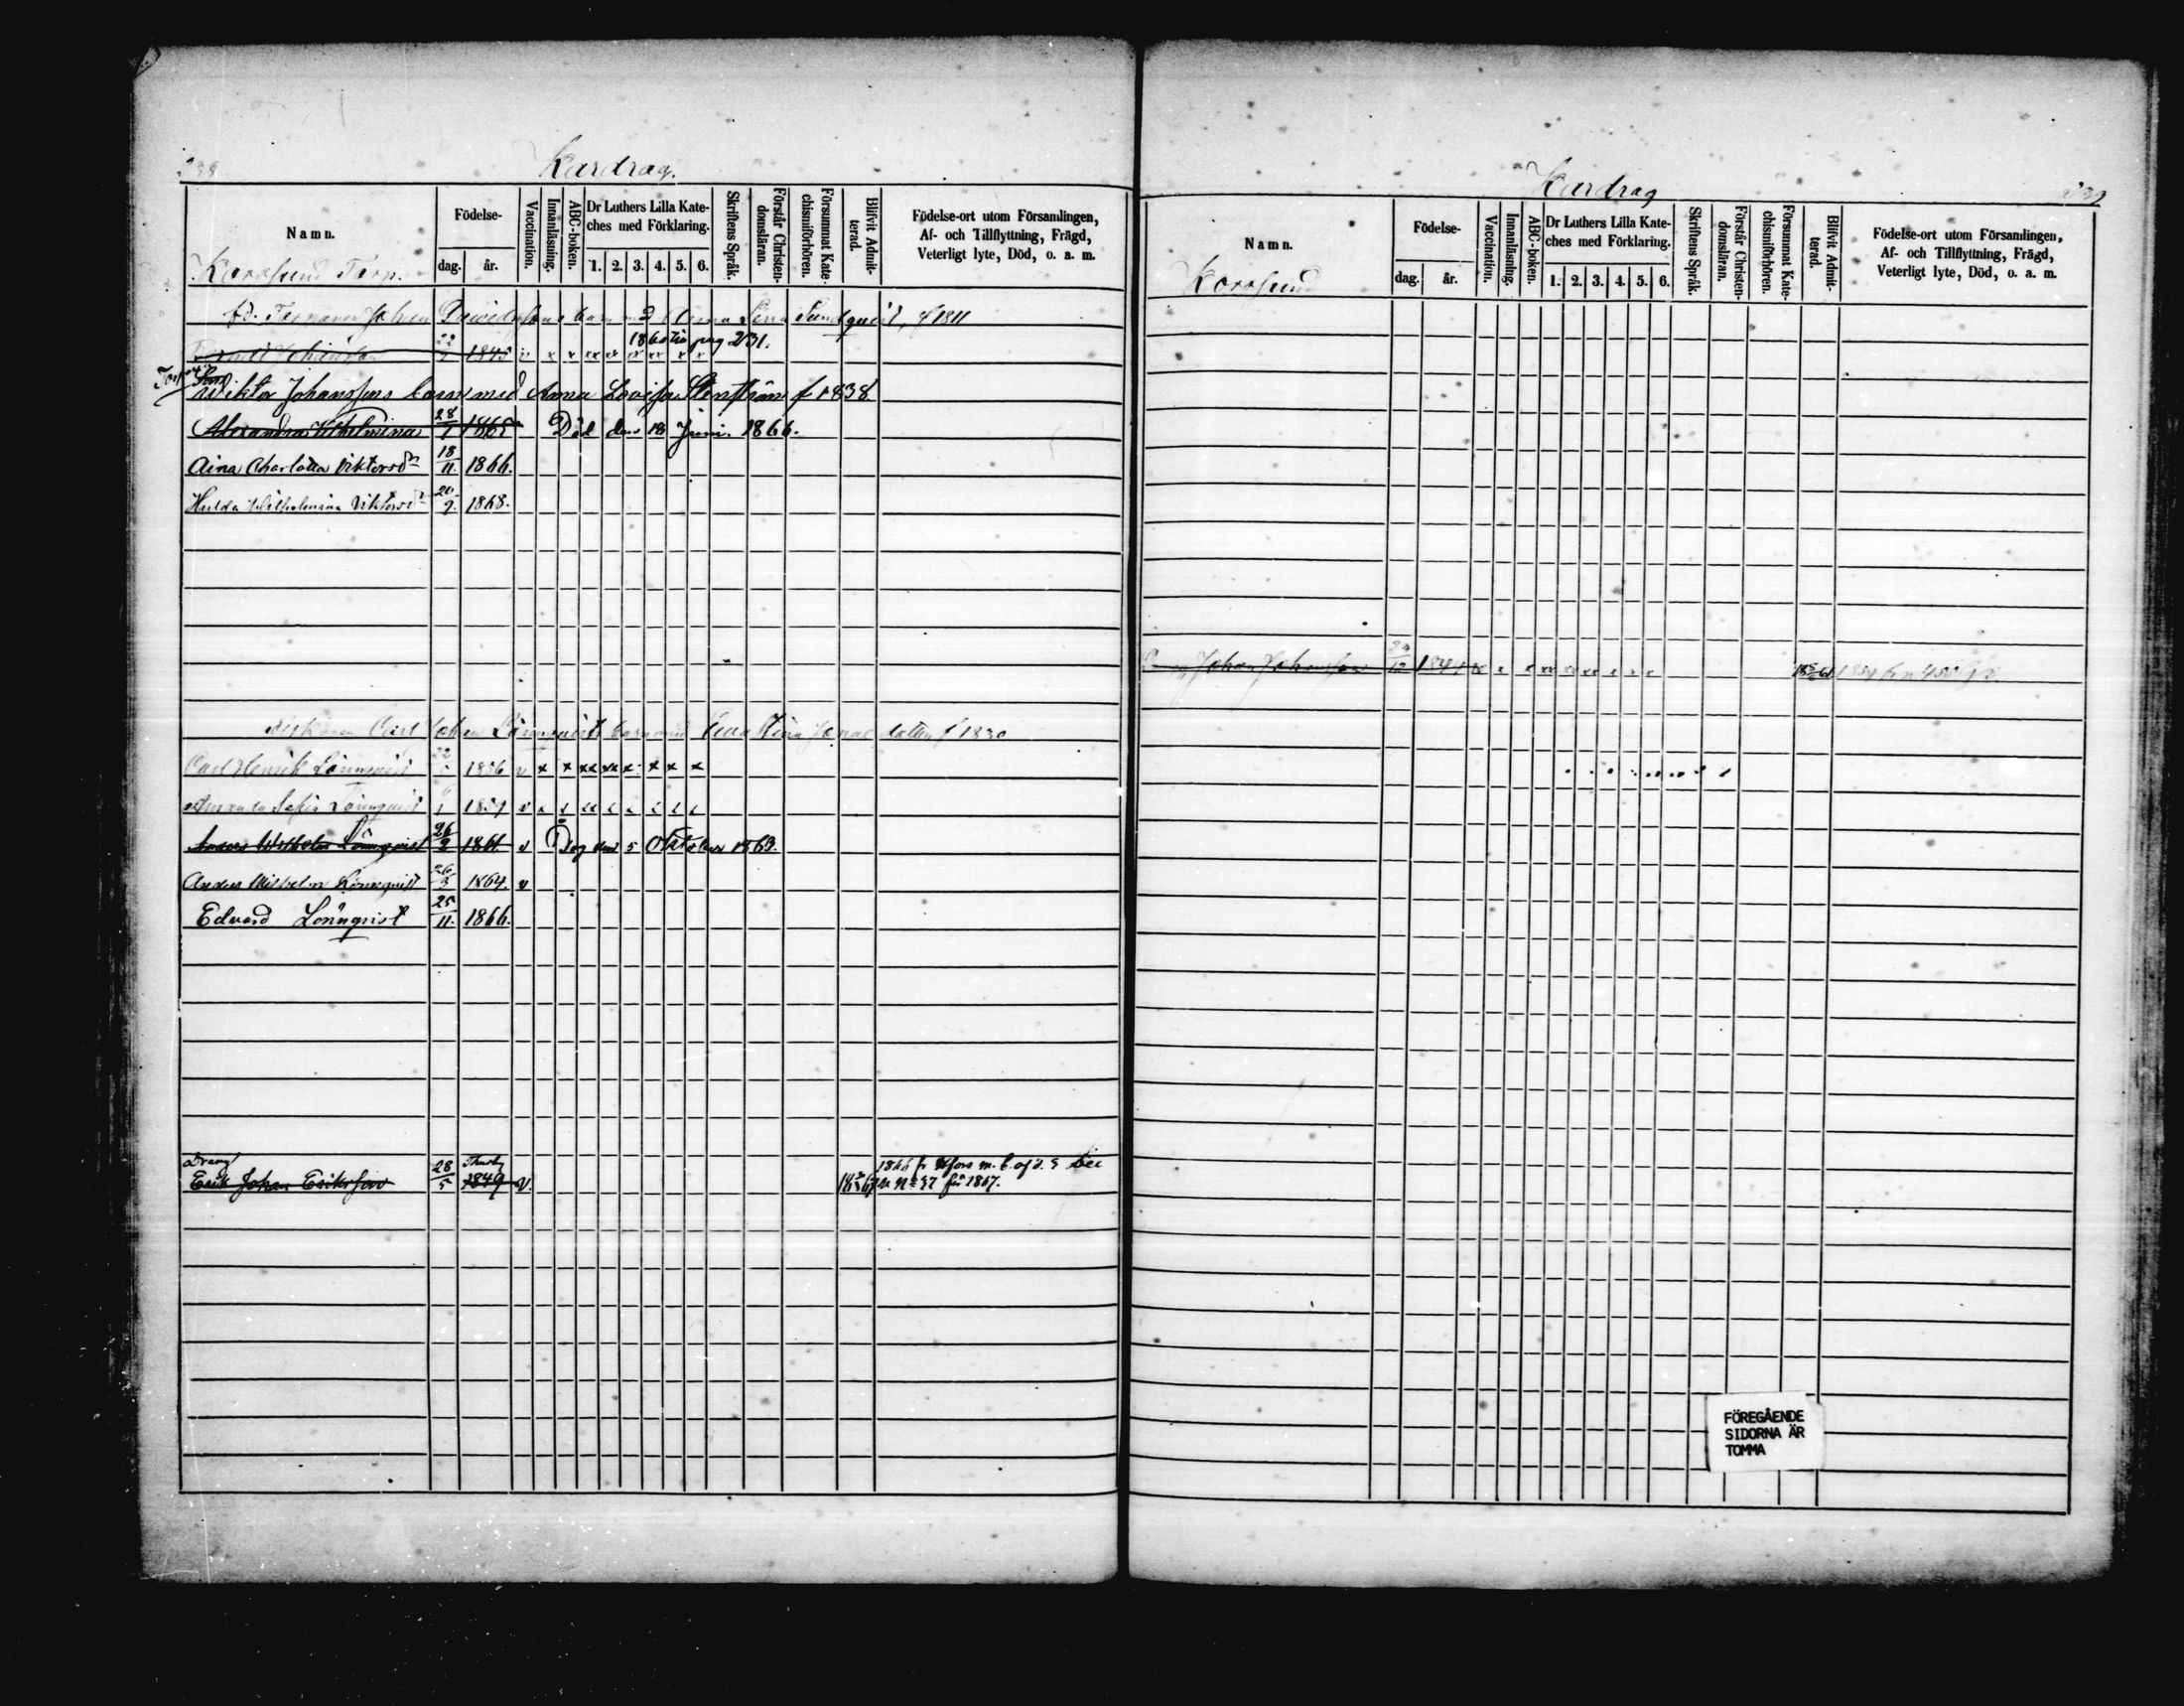 238
Kardrag.
Namn.
Födelse-
dag.
år.
Vaccination.
Innanläsning.
ABC-boken.
Dr Luthers Lilla Kate-
ches med Förklaring.
1. 2. 3. 4. 5. 6.
Skriftens Språk.
Förstår Christen-
domsläran.
Försummat Kate-
chismiförhören.
Blifvit Admit-
terad.
Födelse-ort utom Församlingen,
Af- och Tillflyttning, Frägd,
Veterligt lyte, Död, o. a. m.
Korssund Torp.
fd. Torparen Johan Davidssons barn m Lena Sundqvist, f 1811
22 1845 v x x xx xx xx xx x x 1860 pag 231.
Torparen
Wiktor Johanssons barn med Anna Lovisa Stenström f 1838
Alexandra Wilhelmina 28/1 1865 Död den 18 Juni. 1866.
Aina Charlotta Viktorsdr 18/11. 1866.
Hulda Wilhelmina Viktorsdr 20/9. 1868.
Carl Johan Lönnqvists barn med Lena Stina f 1830
Carl Henrik Lönnqvist 22 1856 v x x xx xx x x x x
Amanda Sofia Lönnqvist 6/1 1859 v
Anders Wilhelm Lönnqvist 26/2 1861. v Dog den 5 Oktober 1863.
Anders Wilhelm Lönnqvist 26/3 1864. v
Edvard Lönnqvist 25/11. 1866.
Dräng
Erik Johan Eriksson 28/5 1849 v.
1866 fr
N:o 37 för 1867.
Kardrag
239
Namn.
Födelse-
dag.
år.
Vaccination.
Innanläsning.
ABC-boken.
Dr Luthers Lilla Kate-
ches med Förklaring.
1. 2. 3. 4. 5. 6.
Skriftens Språk.
Förstår Christen-
domsläran.
Försummat Kate-
chismiförhören.
Blifvit Admit-
terad.
Födelse-ort utom Församlingen,
Af- och Tillflyttning, Frägd,
Veterligt lyte, Död, o. a. m.
Korssund
Johan Johansson
FÖREGÅENDE
SIDORNA ÄR
TOMMA